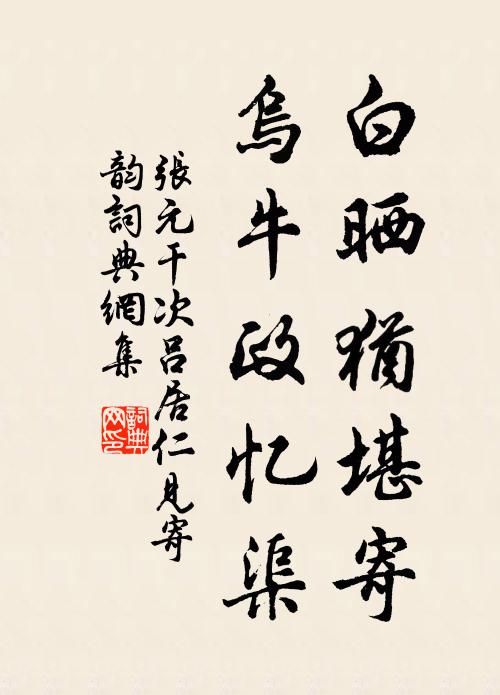 白晒猶堪寄
烏牛政忆渠
張元干次吕居仁見寄
韵詞典網集
詞典
网印